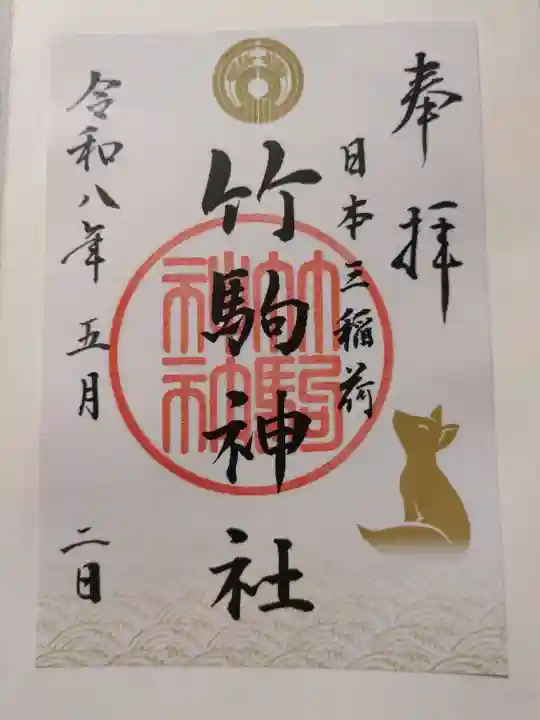 奉拝
日本三稲荷
竹駒神社
竹駒神社
令和八年 五月 二日